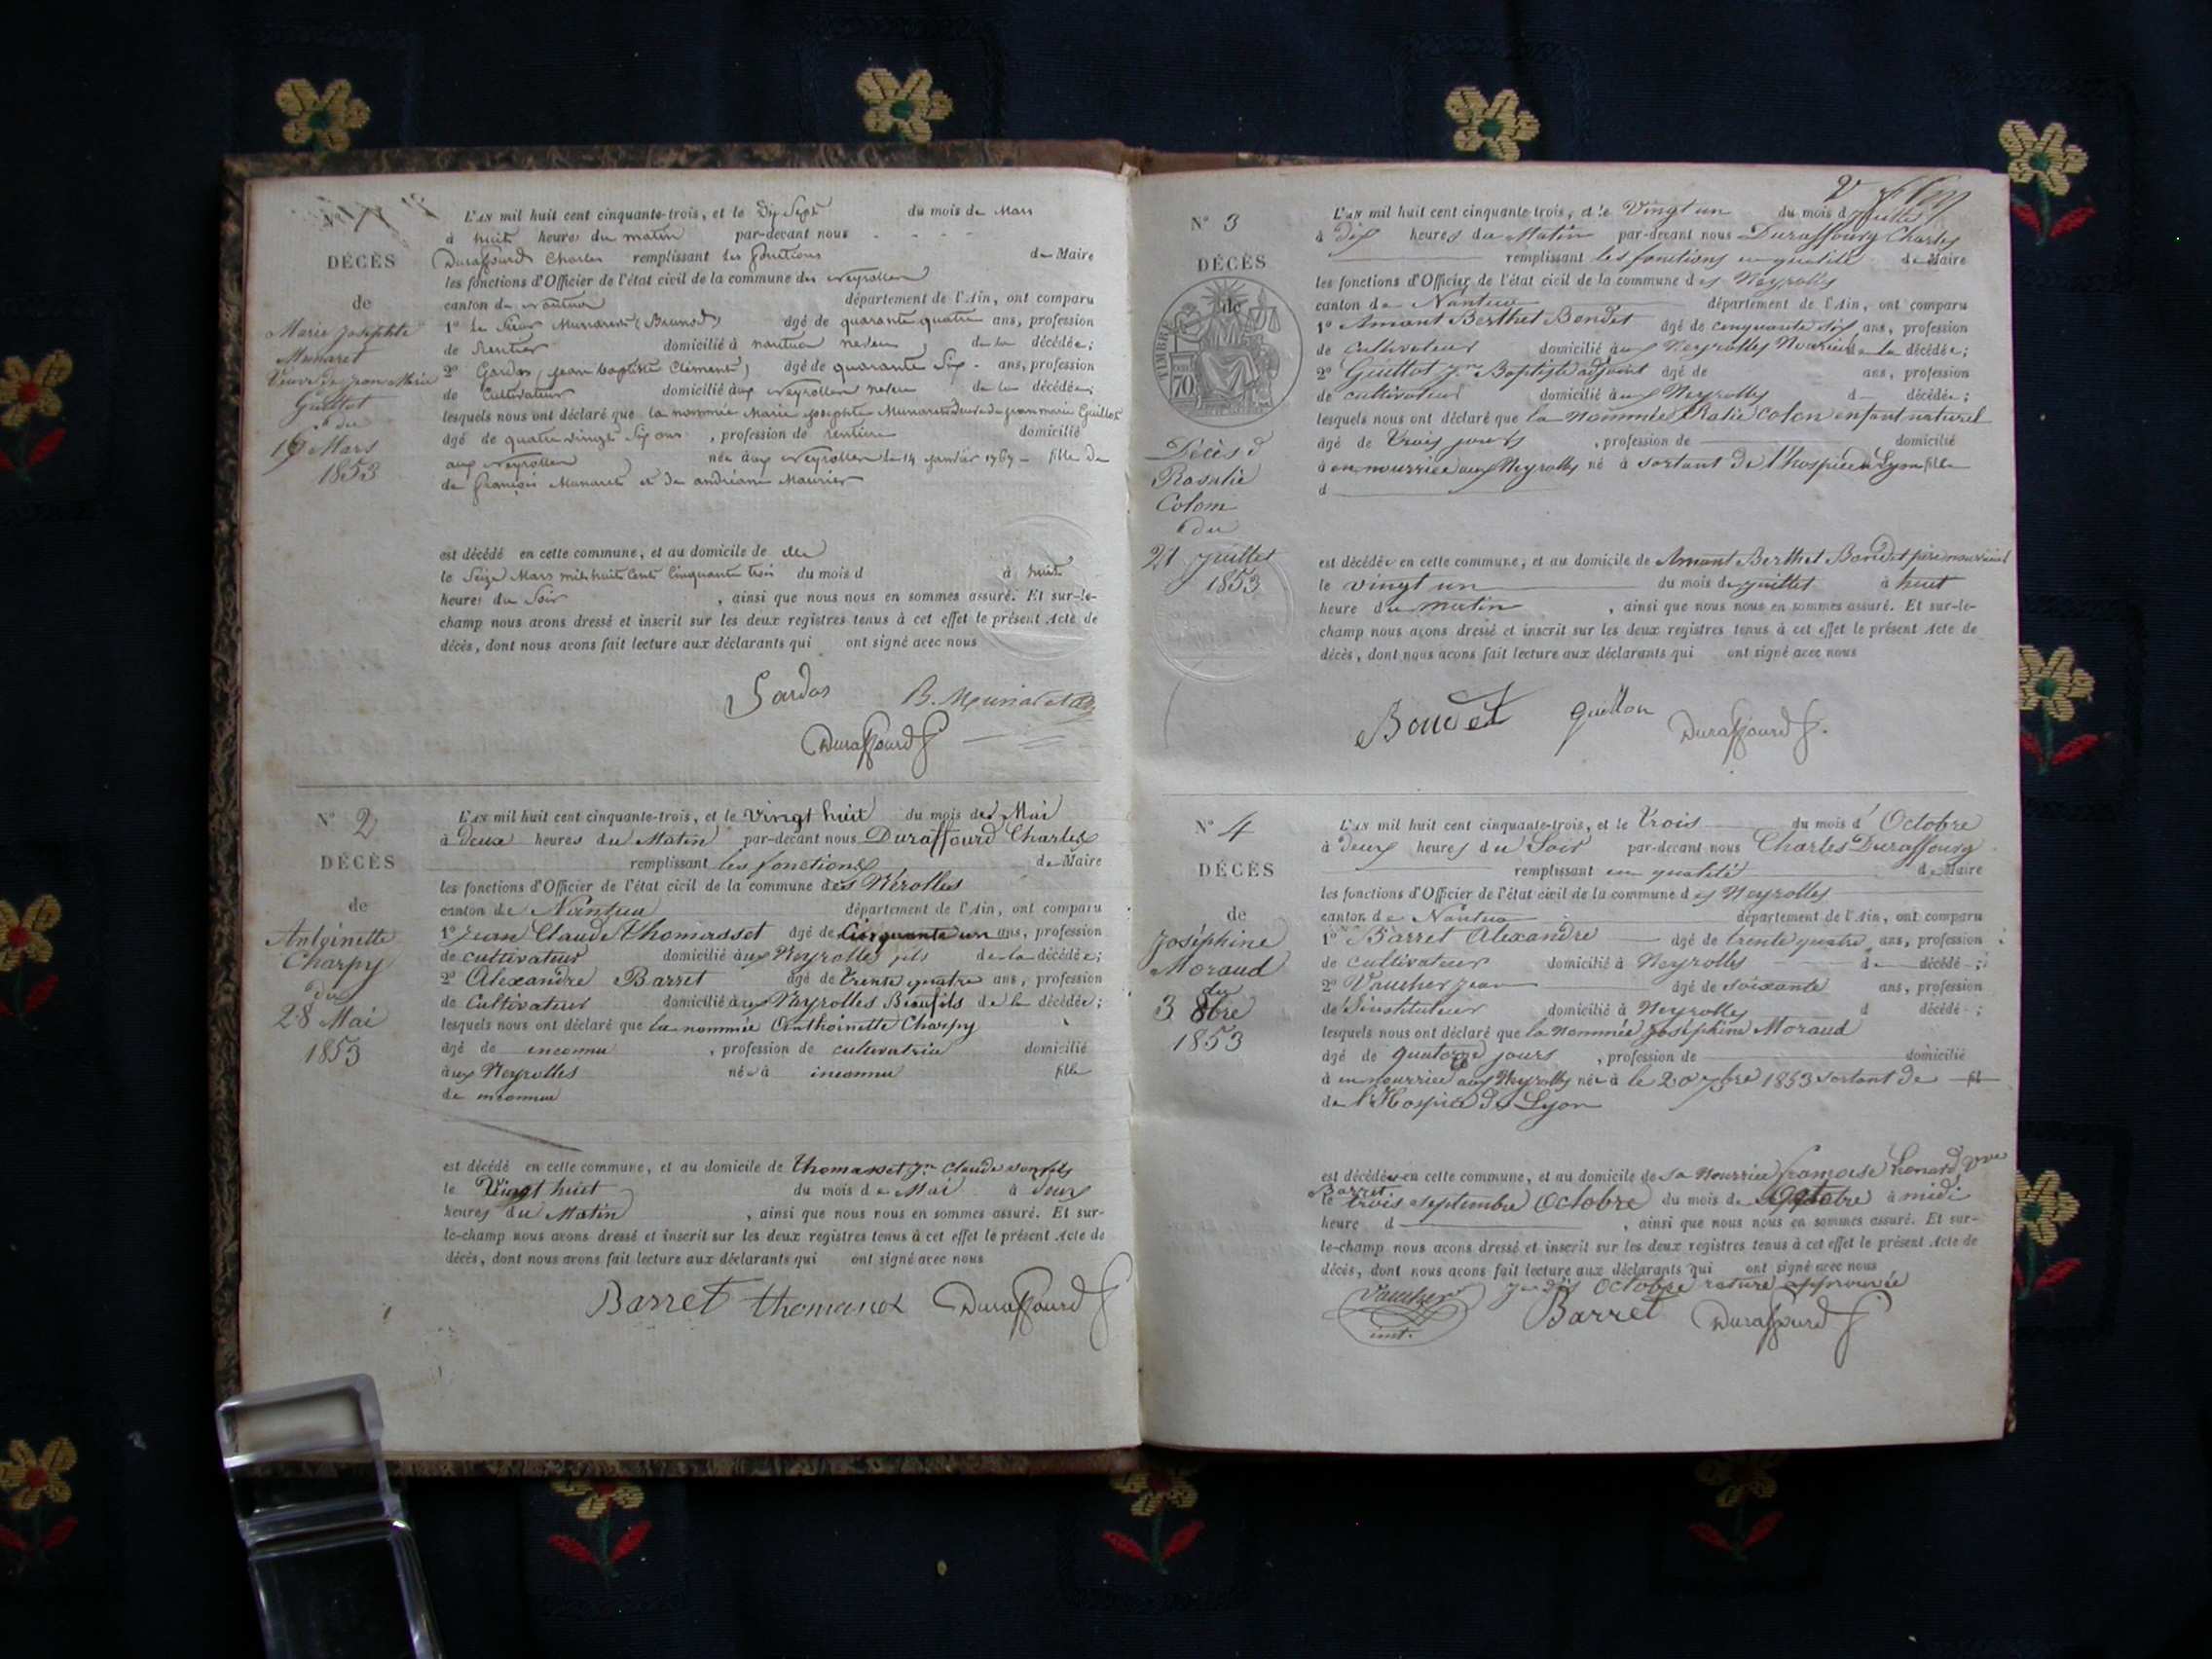 N° 1
DÉCÈS
de
Marie Josephte
Munaret
Veuve de Jean Marie
Guillot
du
16 Mars
1853
L'AN mil huit cent cinquante-trois, et le Dix Sept du mois de Mars
à huit heures du matin par-devant nous
Duraffourd Charles remplissant les fonctions de Maire
les fonctions d'Officier de l'état civil de la commune des Neyrolles
canton de Nantua département de l'Ain, ont comparu
1° Le Sieur Munaret (Brunod) âgé de quarante quatre ans, profession
de Rentier domicilié à nantua neveu de la décédée;
2° Gardas, (jean baptiste Clément) âgé de quarante Six ans, profession
de Cultivateur domicilié aux Neyrolles neveu de la décédée;
lesquels nous ont déclaré que la nommée Marie Josephte Munaret Veuve de jean marie Guillot
âgé de quatre vingt Six ans, profession de rentiere domicilié
aux Neyrolles née aux Neyrolles le 14 janvier 1767 fille de
de françois Munaret et de andréane Maurier
est décédé en cette commune, et au domicile de elle
le Seize Mars mil huit Cent Cinquante trois du mois d à huit
heures du Soir, ainsi que nous nous en sommes assuré. Et sur-le-
champ nous avons dressé et inscrit sur les deux registres tenus à cet effet le présent Acte de
décès, dont nous avons fait lecture aux déclarants qui ont signé avec nous
Gardas B. Munaret
Duraffourd
N° 2
DÉCÈS
de
Antoinette
Charpy
du
28 Mai
1853
L'AN mil huit cent cinquante-trois, et le Vingt huit du mois de Mai
à deux heures du Matin par-devant nous Duraffourd Charles
remplissant les fonctions de Maire
les fonctions d'Officier de l'état civil de la commune des Nérolles
canton de Nantua département de l'Ain, ont comparu
1° Jean Claude Thomasset âgé de Cinquante un ans, profession
de cultivateur domicilié aux Neyrolles fils de la décédée;
2° Alexandre Barret âgé de trente quatre ans, profession
de Cultivateur domicilié aux Neyrolles Beaufils de la décédée;
lesquels nous ont déclaré que la nommée Anthoinette Charpy
âgé de inconnu, profession de cultivatrice domicilié
aux Neyrolles née à inconnu fille
de inconnu
est décédé en cette commune, et au domicile de Thomasset Jn Claude son fils
le Vingt huit du mois de Mai à deux
heures du Matin, ainsi que nous nous en sommes assuré. Et sur-
le-champ nous avons dressé et inscrit sur les deux registres tenus à cet effet le présent Acte de
décès, dont nous avons fait lecture aux déclarants qui ont signé avec nous
Barret Thomasset Duraffourd
N° 3
DÉCÈS
de
TIMBRE
70
Décès d
Rosalie
Colom
du
21 Juillet
1853
L'AN mil huit cent cinquante-trois, et le Vingt un du mois d Juillet
à dix heures du Matin par-devant nous Duraffourg Charles
remplissant les fonctions en qualité de Maire
les fonctions d'Officier de l'état civil de la commune des Neyrolles
canton de Nantua département de l'Ain, ont comparu
1° Amant Berthet Bondet âgé de cinquante dix ans, profession
de Cultivateur domicilié aux Neyrolles Nourricier de la décédée;
2° Guillot Jn Baptiste adjoint âgé de ans, profession
de cultivateur domicilié aux Neyrolles d décédée;
lesquels nous ont déclaré que la Nommée Rosalie Colon enfant naturel
âgé de trois jours, profession de domicilié
à en nourrice aux Neyrolles né à sortant de l'hospice de Lyon fille
d
est décédée en cette commune, et au domicile de Amant Berthet Bondet père nourricier
le vingt un du mois de juillet à huit
heure du matin, ainsi que nous nous en sommes assuré. Et sur-le-
champ nous avons dressé et inscrit sur les deux registres tenus à cet effet le présent Acte de
décès, dont nous avons fait lecture aux déclarants qui ont signé avec nous
Boudet Guillot Duraffourd
N° 4
DÉCÈS
de
Joséphine
Moraud
du
3 8bre
1853
L'AN mil huit cent cinquante-trois, et le trois du mois d' Octobre
à deux heures du Soir par-devant nous Charles Duraffourg
remplissant en qualité de Maire
les fonctions d'Officier de l'état civil de la commune des Neyrolles
canton de Nantua département de l'Ain, ont comparu
1° Barret Alexandre âgé de trente quatre ans, profession
de cultivateur domicilié à Neyrolles d décédé;
2° Vaucher Jean âgé de soixante ans, profession
de instituteur domicilié à Neyrolles d décédé;
lesquels nous ont déclaré que la Nommée Joséphine Moraud
âgé de quatorze jours, profession de domicilié
à en nourrice aux Neyrolles née à le 20 7bre 1853 sortant de fil
de l'Hospice de Lyon
est décédée en cette commune, et au domicile de sa Nourrice françoise Leonard Vve
Barret
le trois septembre Octobre du mois de Octobre à midi
heure d, ainsi que nous nous en sommes assuré. Et sur-
le-champ nous avons dressé et inscrit sur les deux registres tenus à cet effet le présent Acte de
décès, dont nous avons fait lecture aux déclarants qui ont signé avec nous
Octobre rature approuvée
Vaucher Barret Duraffourd
inst.